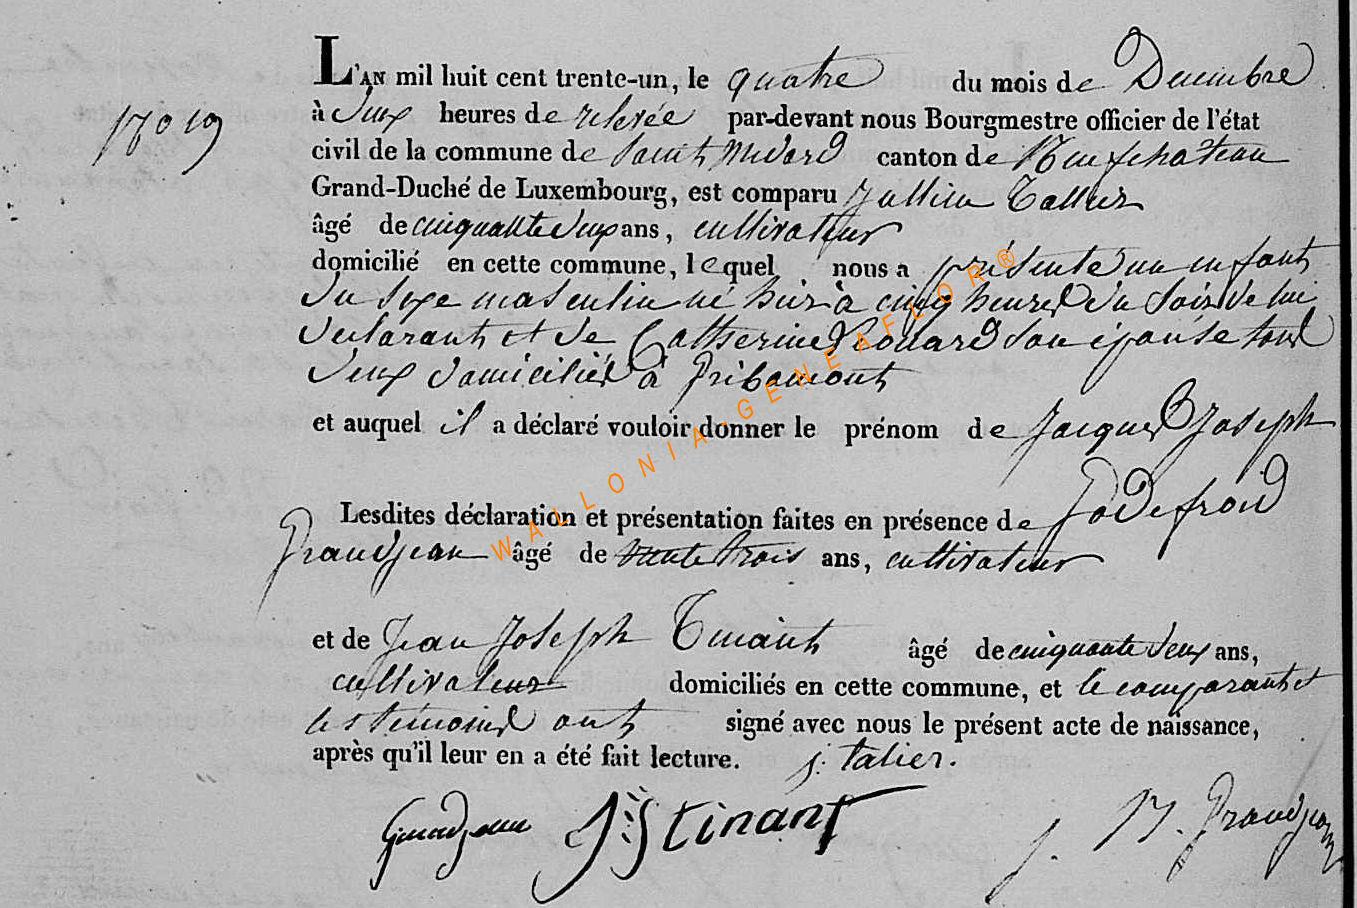 L'AN mil huit cent trente-un, le quatre du mois de Decembre
à deux heures de relevée par-devant nous Bourgmestre officier de l'état
N° 19
civil de la commune de Saint Medard canton de Neufchateau
Grand-Duché de Luxembourg, est comparu Jullien Tallier
âgé de cinquante deux ans, cultivateur
domicilié en cette commune, lequel nous a présenté un enfant
du sexe masculin né hier à cinq heures du soir de lui
declarant et de Catherine son épouse tous
deux domiciliés à Gribomont
et auquel il a déclaré vouloir donner le prénom de Jacques Joseph
Lesdites déclaration et présentation faites en présence de Godefroid
Grandjean âgé de trente trois ans, cultivateur
et de Jean Joseph Tinant âgé de cinquante deux ans,
cultivateur domiciliés en cette commune, et le comparant et
les témoins ont signé avec nous le présent acte de naissance,
après qu'il leur en a été fait lecture. j. talier.
Grandjean JJ tinant J. N. Grandjean
WALLONIA-GENEAFLOR®